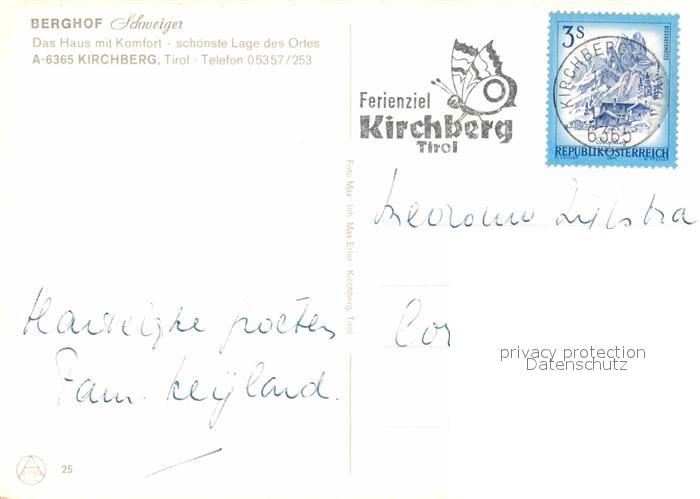 BERGHOF Schweiger
Das Haus mit Komfort - schönste Lage des Ortes
A-6365 KIRCHBERG, Tirol - Telefon 05357/253
Ferienziel
Kirchberg
Tirol
3S
KIRCHBERG
6365
REPUBLIK ÖSTERREICH
Foto Max, Inh. Max Erler, Kirchberg, Tirol
Hartelijke groeten
Fam. Leyland.
Cor
privacy protection
Datenschutz
25